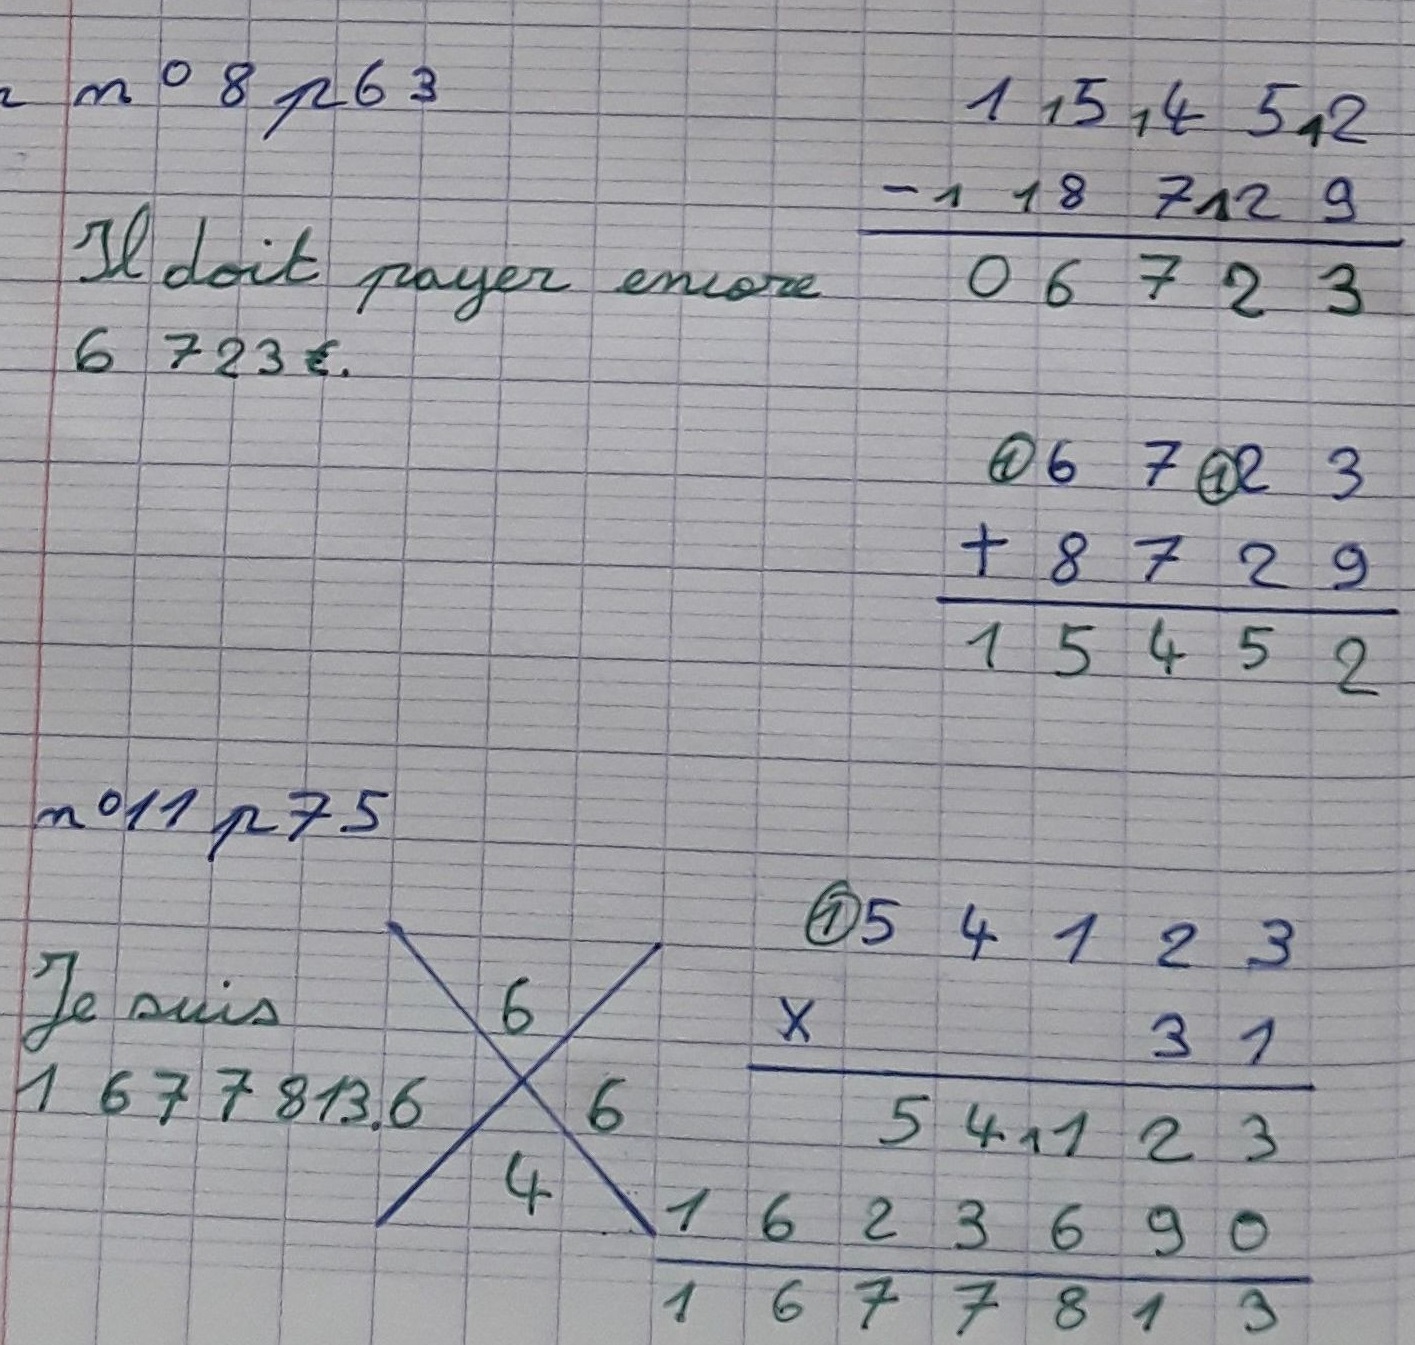 n° 8 p 63
1 ,5 ,4 5 ,2
- 1 18 7 12 9
0 6 7 2 3
Il doit payer encore
6 723 €.
① 6 7 ① 2 3
+ 8 7 2 9
1 5 4 5 2
n° 11 p 75
① 5 4 1 2 3
x 3 1
5 4 ,1 2 3
1 6 2 3 6 9 0
1 6 7 7 8 1 3
Je suis
1 6 7 7 813.
6
6 6
4